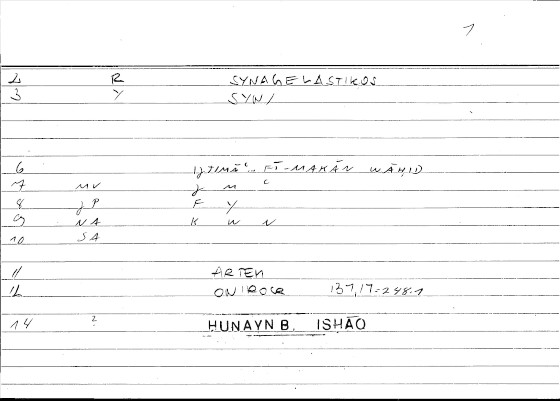 1
2 R SYNAGELASTIKOS
3 Y SYN/
6 IǦTIMĀʿ FĪ-MAKĀN WĀḤID
7 MV ǧ M ʿ
8 ǧP F Y
9 NA K W N
10 SA
11 ARTEM
12 ONIROCR 137,17=248.1
14 2 HUNAYN B. ISHĀQ